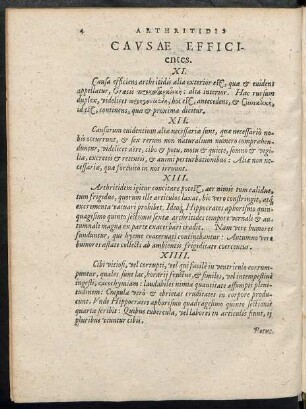 4 ARTHRITIDIS
CAVSAE EFFICI-
entes.
XI.
Causa efficiens arthritidis alia exterior est, quæ & euidens
appellatur, Græcis προκαταρκτική: alia interna. Hæc rursum
duplex, videlicet προηγουμένη, hoc est, antecedens, & συνεκτική,
id est, continens, quæ & proxima dicitur.
XII.
Causarum euidentium aliæ necessariæ sunt, quæ necessariò no-
bis occurrunt, & sex rerum non naturalium numero comprehen-
duntur, videlicet aëre, cibo & potu, motu & quiete, somno & vigi-
lia, excretis & retentis, & animi perturbationibus: Aliæ non ne-
cessariæ, quæ fortuitò in nos irruunt.
XIII.
Arthritidem igitur concitare potest, aër nimis tum calidus,
tum frigidus, quorum ille articulos laxat, hic verò constringit, at�que
excrementa vacuari prohibet. Ideo, Hippocrates aphorismo quin-
quagesimo quinto sectionis sextæ arthriticos tempore vernali & au-
tumnali magna ex parte exacerbari tradit. Nam vere humores
funduntur, qui hyeme coaceruati continebantur: Autumno verò
humores æstate collecti ab ambientis frigiditate exercentur.
XIIII.
Cibi vitiosi, vel corrupti, vel qui facilè in ventriculo corrum-
puntur, quales sunt lac, horarij fructus, & similes, vel intempestiuè
ingesti, cacochymiam: laudabiles nimia quantitate assumpti pleni-
tudinem: Crapula verò & ebrietas cruditates in corpore produ-
cunt. Vnde Hippocrates aphorismo quadragesimo quinto sectionis
quartæ scribit: Quibus tubercula, vel labores in articulis fiunt, ij
pluribus vtuntur cibis.
Potus